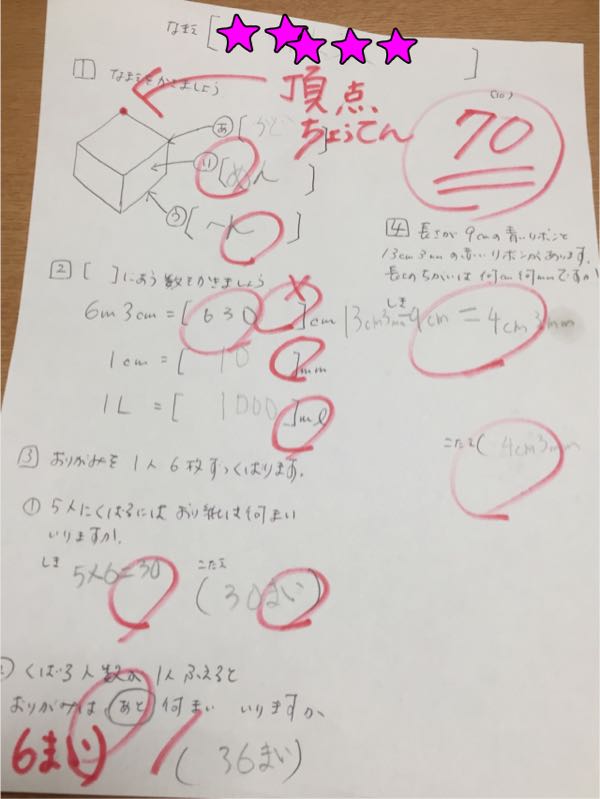 なまえ [ ]
1 なまえをかきましょう
頂点
ちょうてん
あ [ かど ]
い [ めん ]
う [ へん ]
(100)
70
2 [ ]にあう数をかきましょう
6m3cm = [ 630 ]cm
1cm = [ 10 ]mm
1L = [ 1000 ]ml
3 おりがみを1人6枚ずつくばります。
① 5人にくばるには おり紙は何まい
いりますか。
しき 5×6=30
こたえ (30まい)
くばる人数が 1人ふえると
おりがみは、あと 何まい いりますか
6まい
(36まい)
4 長さが 9cmの青いリボンと
13cm3mmの赤いリボンがあります。
長さのちがいは 何cm何mmですか
しき
13cm3mm-9cm=4cm3mm
こたえ( 4cm3mm